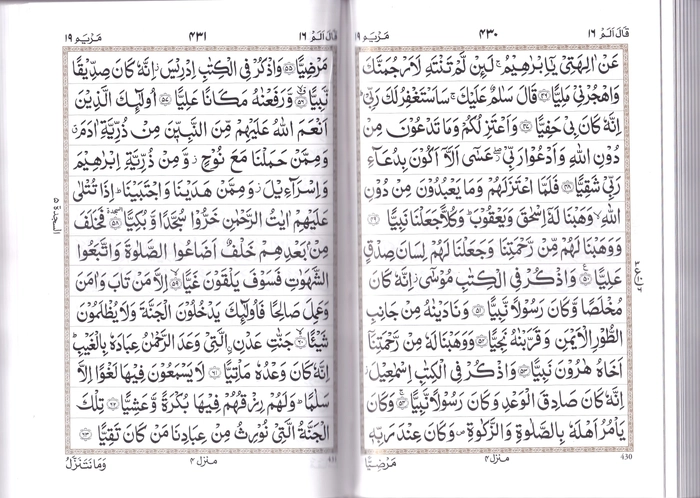 قَالَ اَلَمْ ١٦
٤٣٠
مَرْيَم ١٩
عَنْ اٰلِهَتِيْ يٰۤاِبْرٰهِيْمُ ۚ لَئِنْ لَّمْ تَنْتَهِ لَاَرْجُمَنَّكَ
وَاهْجُرْنِيْ مَلِيًّا ﴿٤٦﴾ قَالَ سَلٰمٌ عَلَيْكَ ۚ سَاَسْتَغْفِرُ لَكَ رَبِّيْ ؕ
اِنَّهٗ كَانَ بِيْ حَفِيًّا ﴿٤٧﴾ وَاَعْتَزِلُكُمْ وَمَا تَدْعُوْنَ مِنْ
دُوْنِ اللّٰهِ وَاَدْعُوْا رَبِّيْ ۖ عَسٰۤى اَلَّاۤ اَكُوْنَ بِدُعَآءِ
رَبِّيْ شَقِيًّا ﴿٤٨﴾ فَلَمَّا اعْتَزَلَهُمْ وَمَا يَعْبُدُوْنَ مِنْ دُوْنِ
اللّٰهِ ۙ وَهَبْنَا لَهٗۤ اِسْحٰقَ وَيَعْقُوْبَ ؕ وَكُلًّا جَعَلْنَا نَبِيًّا ﴿٤٩﴾
وَوَهَبْنَا لَهُمْ مِّنْ رَّحْمَتِنَا وَجَعَلْنَا لَهُمْ لِسَانَ صِدْقٍ
عَلِيًّا ﴿٥٠﴾ وَاذْكُرْ فِي الْكِتٰبِ مُوْسٰۤى ۫ اِنَّهٗ كَانَ
مُخْلَصًا وَّكَانَ رَسُوْلًا نَّبِيًّا ﴿٥١﴾ وَنَادَيْنٰهُ مِنْ جَانِبِ
الطُّوْرِ الْاَيْمَنِ وَقَرَّبْنٰهُ نَجِيًّا ﴿٥٢﴾ وَوَهَبْنَا لَهٗ مِنْ رَّحْمَتِنَاۤ
اَخَاهُ هٰرُوْنَ نَبِيًّا ﴿٥٣﴾ وَاذْكُرْ فِي الْكِتٰبِ اِسْمٰعِيْلَ ۫
اِنَّهٗ كَانَ صَادِقَ الْوَعْدِ وَكَانَ رَسُوْلًا نَّبِيًّا ﴿٥٤﴾ وَكَانَ
يَاْمُرُ اَهْلَهٗ بِالصَّلٰوةِ وَالزَّكٰوةِ ۪ وَكَانَ عِنْدَ رَبِّهٖ
430
منزل ٤
مَرْضِيًّا
قَالَ اَلَمْ ١٦
٤٣١
مَرْيَم ١٩
مَرْضِيًّا ﴿٥٥﴾ وَاذْكُرْ فِي الْكِتٰبِ اِدْرِيْسَ ۫ اِنَّهٗ كَانَ صِدِّيْقًا
نَّبِيًّا ﴿٥٦﴾ وَّرَفَعْنٰهُ مَكَانًا عَلِيًّا ﴿٥٧﴾ اُولٰٓئِكَ الَّذِيْنَ
اَنْعَمَ اللّٰهُ عَلَيْهِمْ مِّنَ النَّبِيّٖنَ مِنْ ذُرِّيَّةِ اٰدَمَ ۗ
وَمِمَّنْ حَمَلْنَا مَعَ نُوْحٍ ۫ وَّمِنْ ذُرِّيَّةِ اِبْرٰهِيْمَ
وَاِسْرَآءِيْلَ ۫ وَمِمَّنْ هَدَيْنَا وَاجْتَبَيْنَا ؕ اِذَا تُتْلٰى
عَلَيْهِمْ اٰيٰتُ الرَّحْمٰنِ خَرُّوْا سُجَّدًا وَّبُكِيًّا ﴿٥٨﴾ فَخَلَفَ
مِنْۢ بَعْدِهِمْ خَلْفٌ اَضَاعُوا الصَّلٰوةَ وَاتَّبَعُوا
الشَّهَوٰتِ فَسَوْفَ يَلْقَوْنَ غَيًّا ﴿٥٩﴾ اِلَّا مَنْ تَابَ وَاٰمَنَ
وَعَمِلَ صَالِحًا فَاُولٰٓئِكَ يَدْخُلُوْنَ الْجَنَّةَ وَلَا يُظْلَمُوْنَ
شَيْئًا ﴿٦٠﴾ جَنّٰتِ عَدْنِ ِۨالَّتِيْ وَعَدَ الرَّحْمٰنُ عِبَادَهٗ بِالْغَيْبِ ؕ
اِنَّهٗ كَانَ وَعْدُهٗ مَاْتِيًّا ﴿٦١﴾ لَا يَسْمَعُوْنَ فِيْهَا لَغْوًا اِلَّا
سَلٰمًا ؕ وَلَهُمْ رِزْقُهُمْ فِيْهَا بُكْرَةً وَّعَشِيًّا ﴿٦٢﴾ تِلْكَ
الْجَنَّةُ الَّتِيْ نُوْرِثُ مِنْ عِبَادِنَا مَنْ كَانَ تَقِيًّا ﴿٦٣﴾
السجدة ٥
منزل ٤
وَمَا نَتَنَزَّلُ